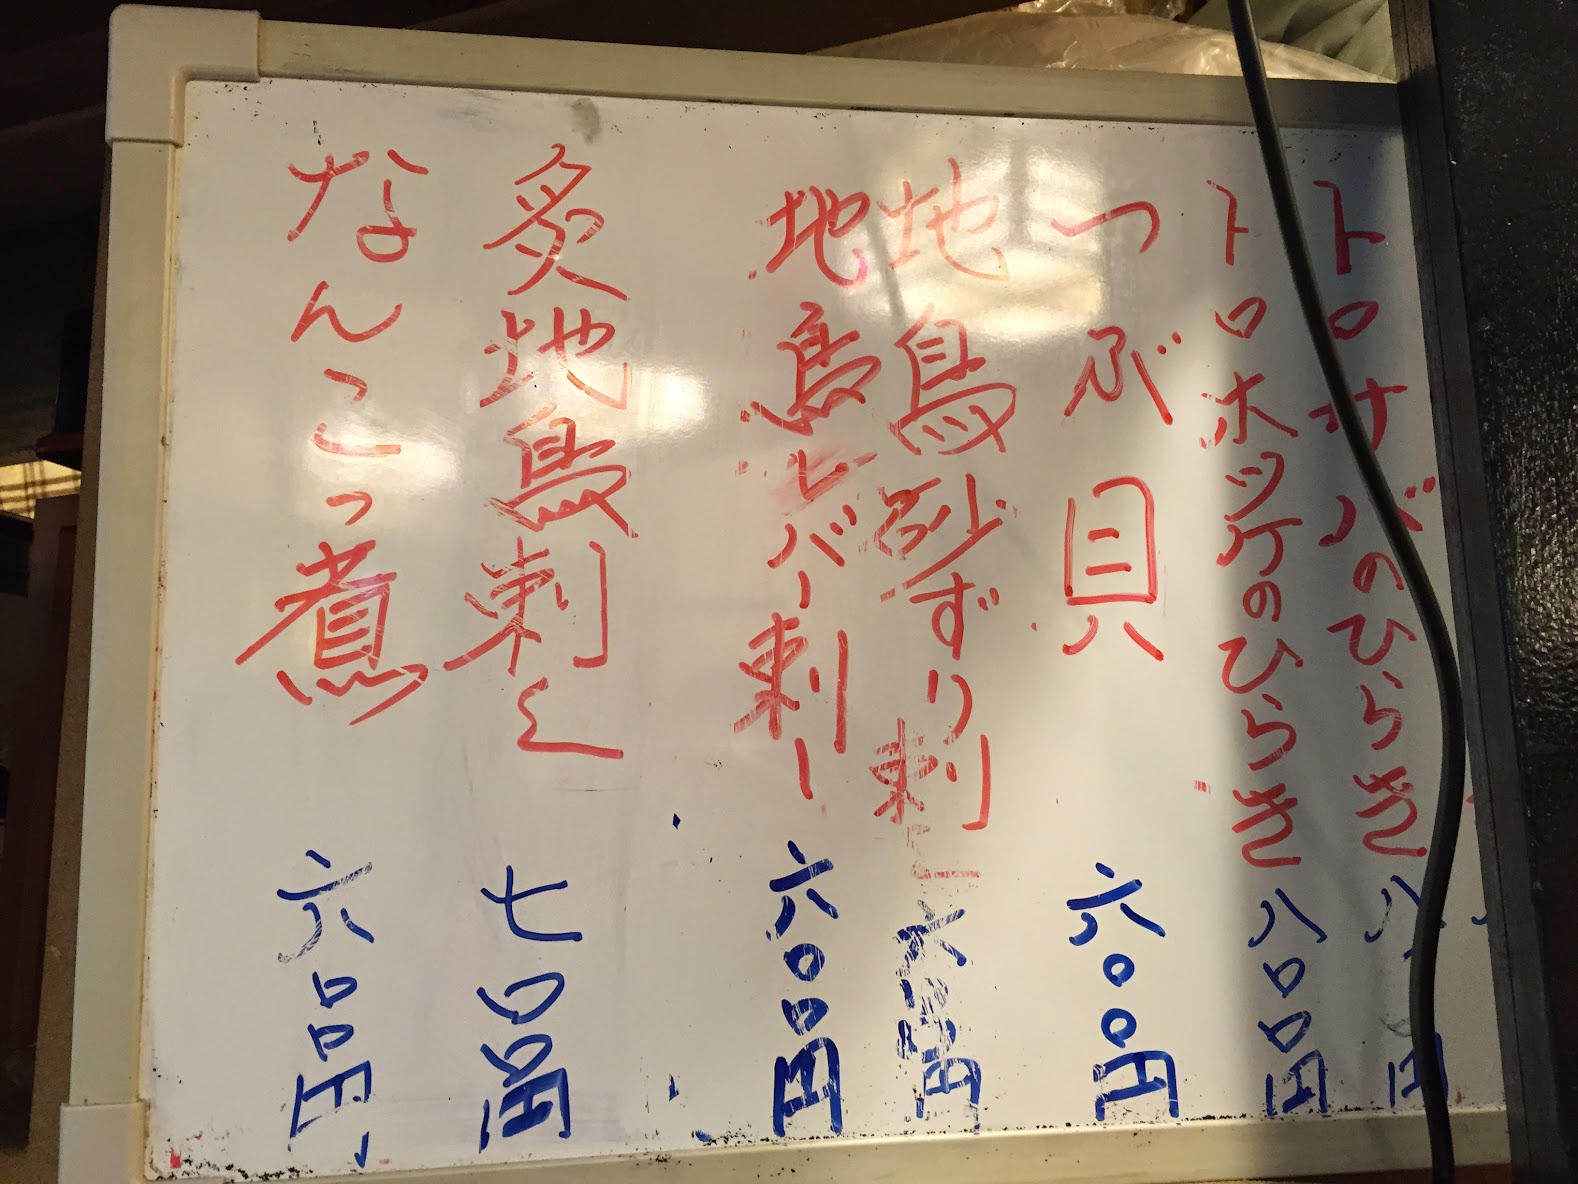 トロサバのひらき 八
トロホッケのひらき 八〇〇円
つぶ貝 六〇〇円
地鳥砂ずり刺し 六〇〇円
地鳥レバー刺し 六〇〇円
炙地鳥刺し 七〇〇円
なんこつ煮 六〇〇円